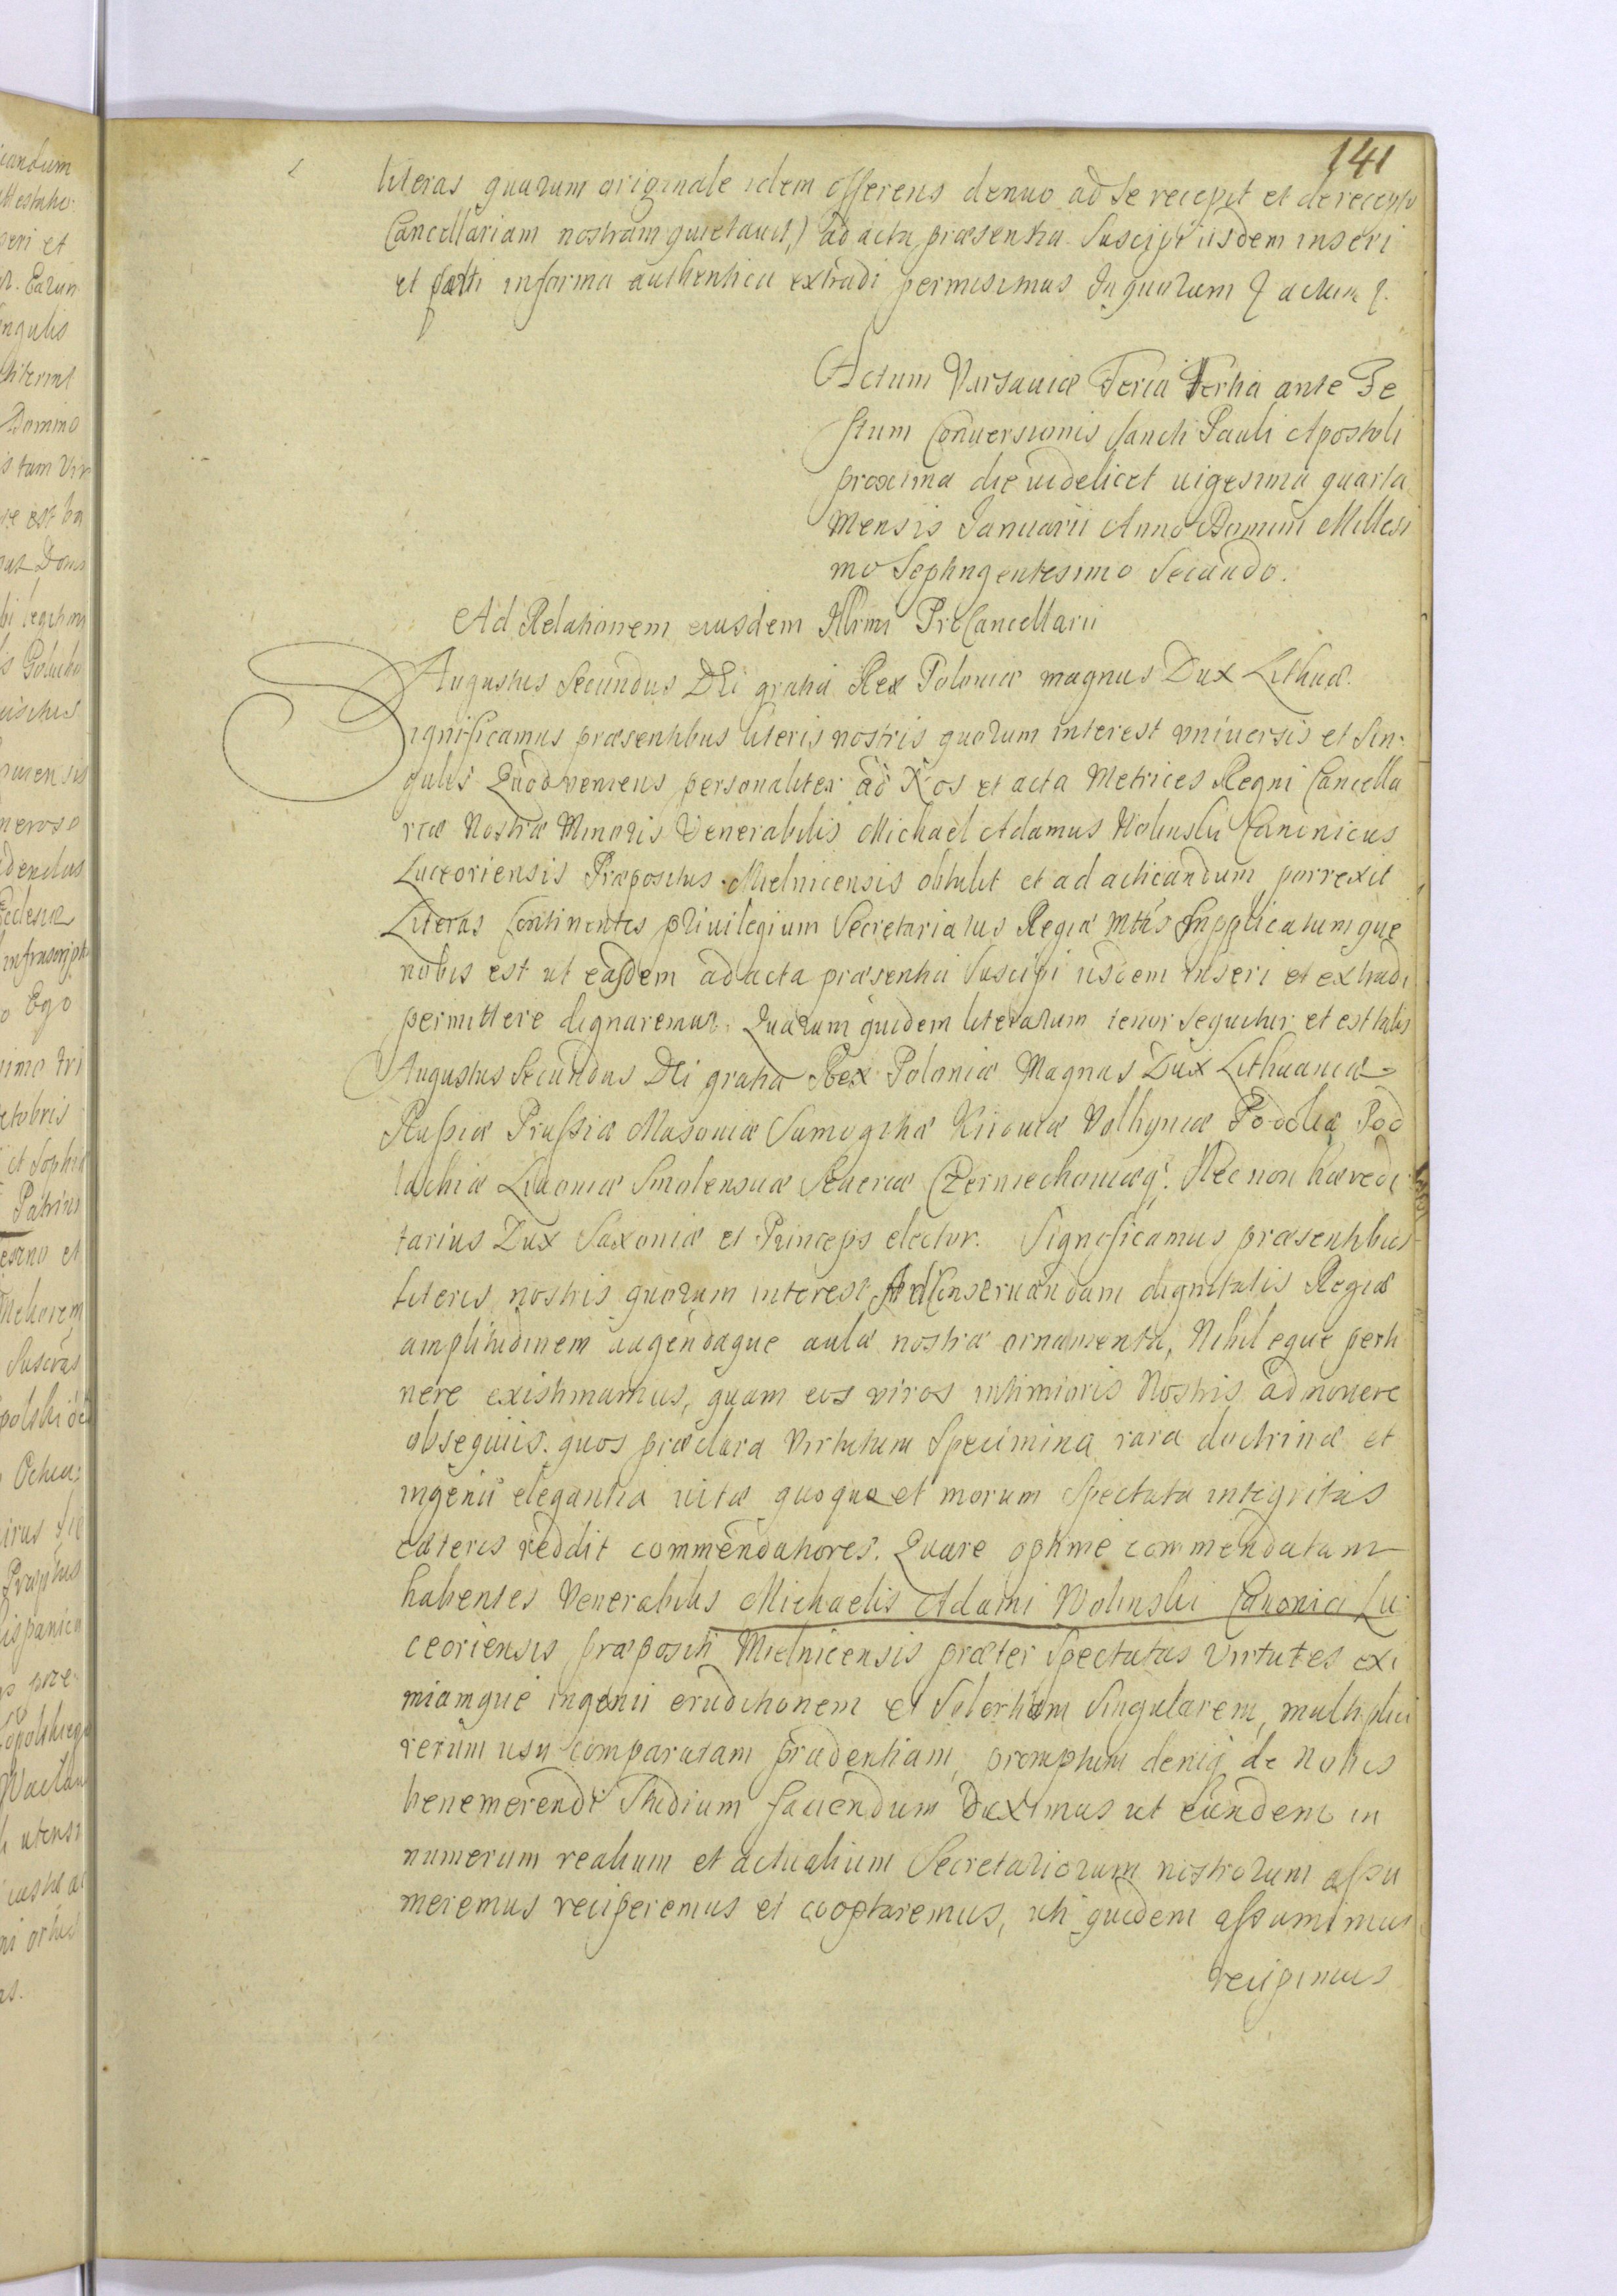 141
literas quarum originale idem offerens denuo ad se recepit et de recepto
Cancellariam nostram quietauit,) ad acta præsentia Suscipi iisdem inseri
et parti in forma authentica extradi permisimus In quorum actum
Actum Varsauiæ Feria Tertia ante Fe
stum Conuersionis Sancti Pauli Apostoli
proxima die uidelicet uigesima quarta
Mensis Ianuarii Anno Domini Millesi
mo Septingentesimo Secundo.
Ad Relationem eiusdem Illrmi ProCancellarii
Augustus Secundus DEi gratia Rex Poloniæ magnus Dux Lithuæ.
Significamus præsentibus literis nostris quorum interest vniuersis et Sin-
gulis Quod veniens personaliter ad Nos et acta Metrices Regni Cancella
riæ Nostræ Minoris Venerabilis Michael Adamus Wolinski Canonicus
Luceoriensis Præpositus Mielnicensis obtulit et ad acticandum porrexit
Literas Continentes priuilegium Secretariatus Regiæ Mttis Supplicatumque
nobis est ut easdem ad acta præsentia Suscipi iisdem inseri et extradi
permittere dignaremur. Quarum quidem literarum tenor sequitur et est talis
Augustus Secundus DEi gratia Rex Poloniæ Magnus Dux Lithuaniæ
Russiæ Prussiæ Masouiæ Samogitiæ Kiiouiæ Volhyniæ Podoliæ Pod
lachiæ Liuoniæ Smolensciæ Seueriæ Czerniechouiæq. Nec non hæredi
tarius Dux Saxoniæ et Princeps elector. Significamus præsentibus
literis nostris quorum interest Ad Conseruandam dignitatis Regiæ
amplitudinem augendaque aulæ nostræ ornamenta, Nihil eque perti
nere existimamus, quam eos viros intimioris Nostris admouere
obsequiis. quos præclara Virtutum Specimina rara doctrinæ et
ingenii elegantia uitæ quoque et morum Spectata integritas
cæteris reddit commendatiores. Quare optime commendatam
habentes Venerabilis Michaelis Adami Wolinski Canonici Lu
ceoriensis præpositi Mielnicensis præter Spectatas Virtutes exi
miamque ingenii eruditionem et Solertiam Singularem, multiplici
rerum usu comparatam prudentiam, promptum deniq de Nobis
benemerendi Studium faciendum Duximus ut Eundem in
numerum realium et actualium Secretariorum nostrorum assu
meremus reciperemus et cooptaremus, uti quidem assumimus
recipimus